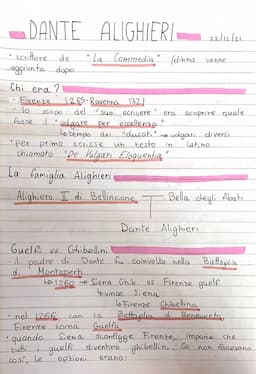 DANTE ALIGHIERI 22/12/21
• scrittore de "La Commedia" (divina venne
aggiunta dopo
Chi era?
• Firenze 1265 - Ravenna 1321
• lo scopo del "suo scrivere" era scoprire quale
fosse il "volgare per eccellenza"
↳ tempo dei "ducati" → volgari diversi
• per primo scrisse un testo in latino
chiamato "De Vulgari Eloquentia"
La famiglia Alighieri
Alighiero II di Bellincione Bella degli Abati
Dante Alighieri
Guelfi vs Ghibellini
• Il padre di Dante fu coinvolto nella Battaglia
di Montaperti
↳ 1260 → Siena Ghib. vs Firenze guelf.
↳ vince Siena
↳ Firenze Ghibellina
• nel 1266, con la Battaglia di Benevento,
Firenze torna Guelfa
• quando Siena sconfigge Firenze, impone che
tutti i guelfi diventino ghibellini. Se non facevano
così, le opzioni erano: